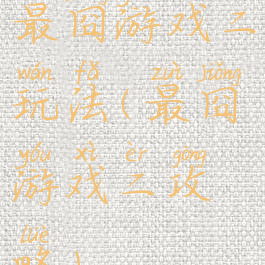 最囧游戏三
wán fǎ zuì jiǒng
玩法(最囧
yóu xì èr gōng
游戏二攻
lüè
略)